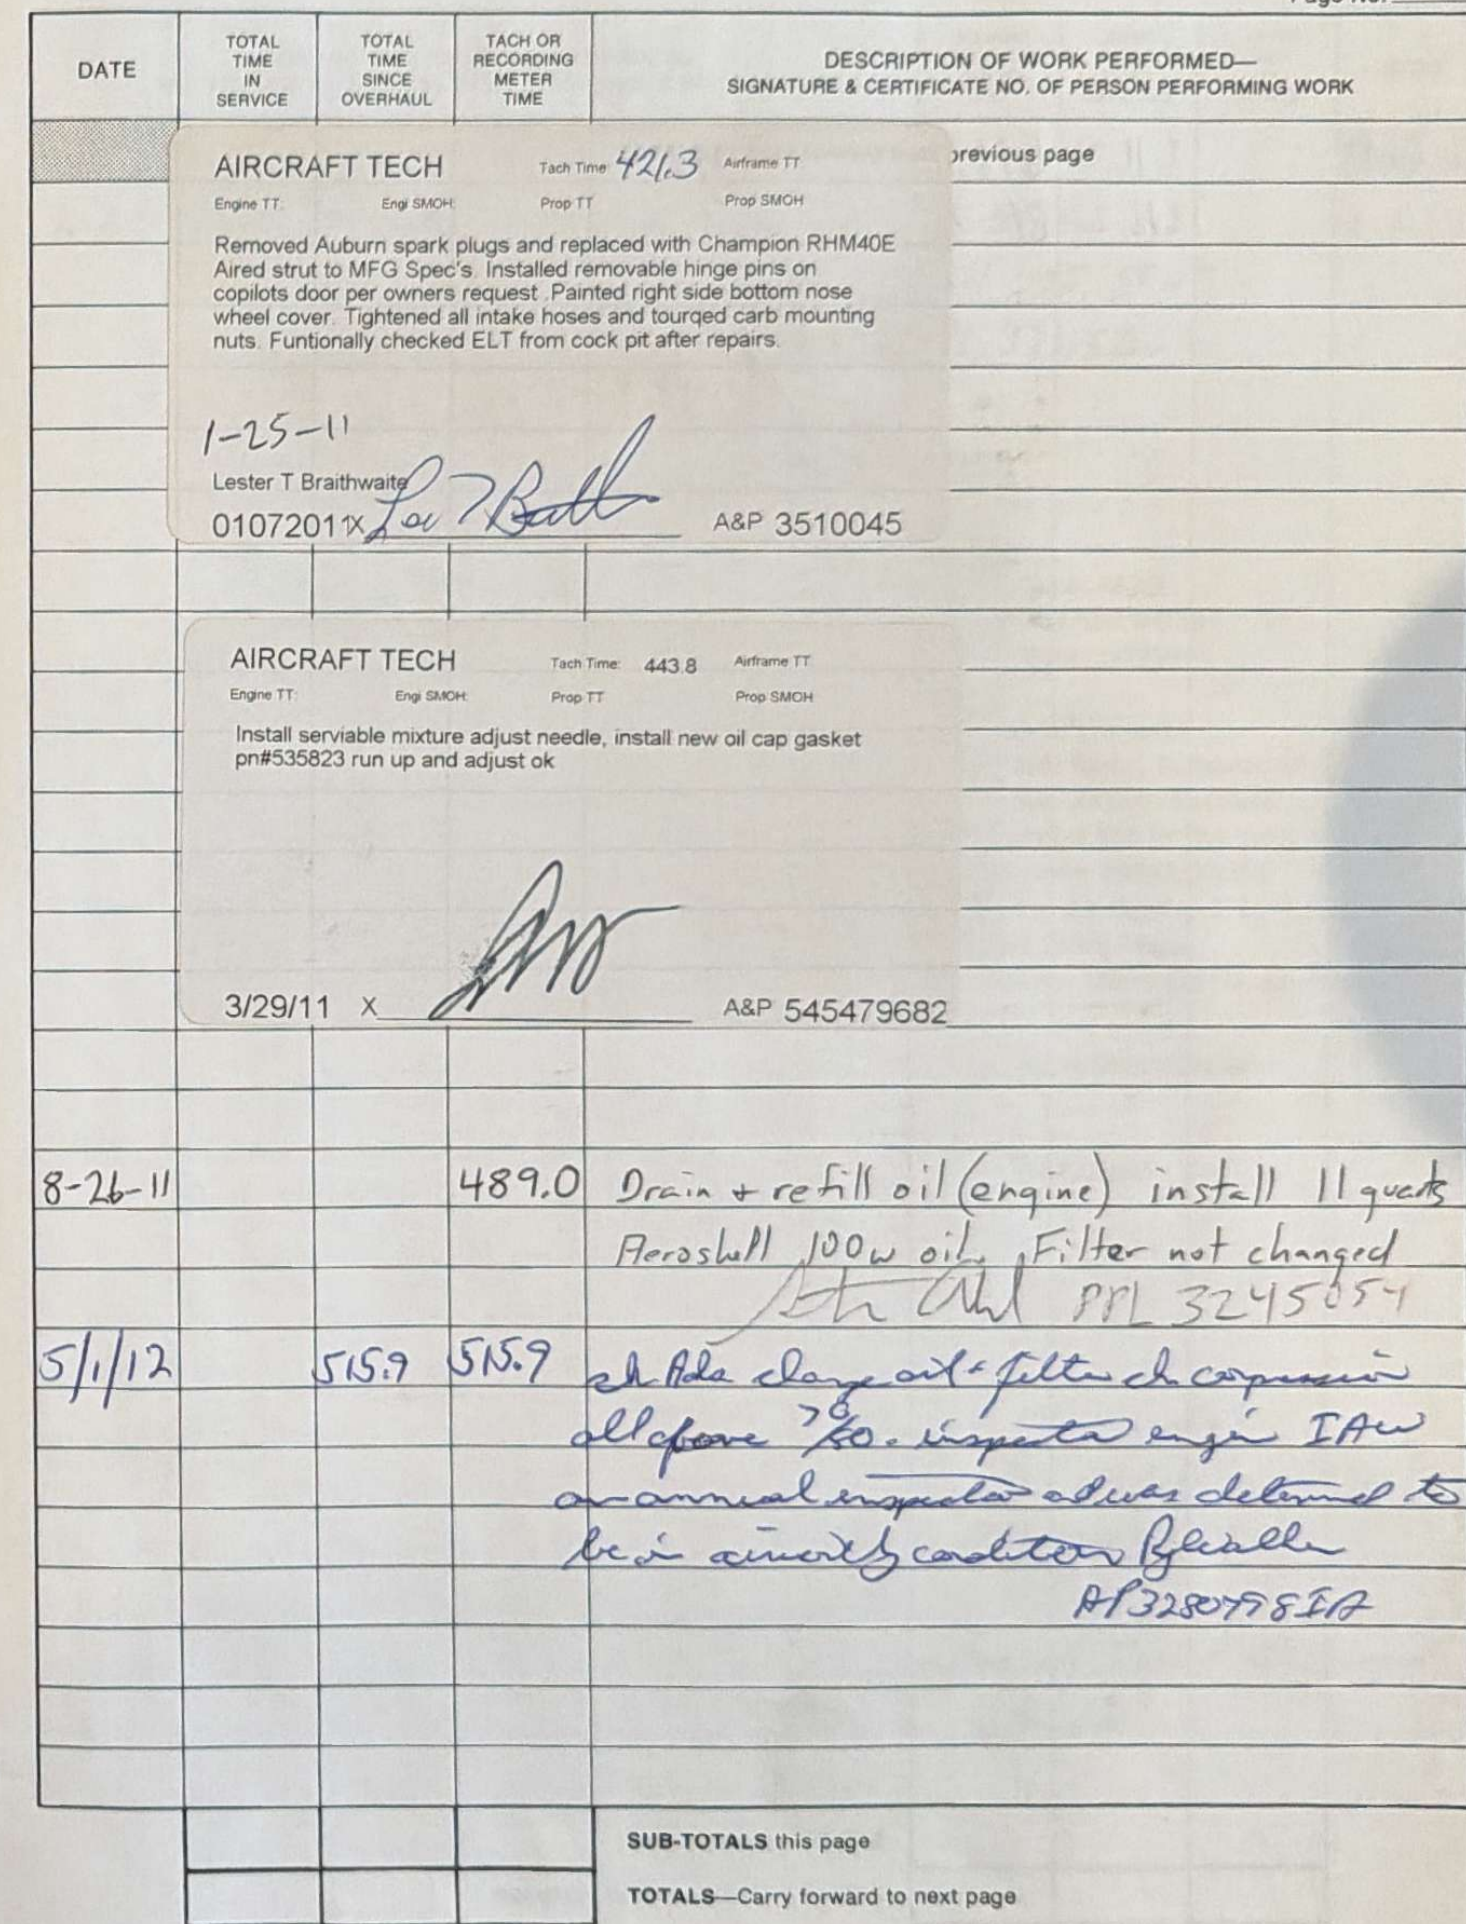 Page No.
DATE
TOTAL TIME IN SERVICE
TOTAL TIME SINCE OVERHAUL
TACH OR RECORDING METER TIME
DESCRIPTION OF WORK PERFORMED—
SIGNATURE & CERTIFICATE NO. OF PERSON PERFORMING WORK
previous page
AIRCRAFT TECH Tach Time: 421.3 Airframe TT
Engine TT: Engi SMOH: Prop TT Prop SMOH
Removed Auburn spark plugs and replaced with Champion RHM40E
Aired strut to MFG Spec's. Installed removable hinge pins on
copilots door per owners request .Painted right side bottom nose
wheel cover. Tightened all intake hoses and tourqed carb mounting
nuts. Funtionally checked ELT from cock pit after repairs.
1-25-11
Lester T Braithwaite
01072011X A&P 3510045
AIRCRAFT TECH Tach Time: 443.8 Airframe TT
Engine TT: Engi SMOH: Prop TT Prop SMOH
Install serviable mixture adjust needle, install new oil cap gasket
pn#535823 run up and adjust ok
3/29/11 X A&P 545479682
8-26-11 489.0 Drain + refill oil (engine) install 11 quarts
Aeroshell 100w oil. Filter not changed
PPL 3245054
5/1/12 515.9 515.9 ch Ads change oil + filter ch compression
all above 78/80. inspected engin IAW
an annual inspection and was determed to
be in airworthy condition
AP3280798IA
SUB-TOTALS this page
TOTALS—Carry forward to next page